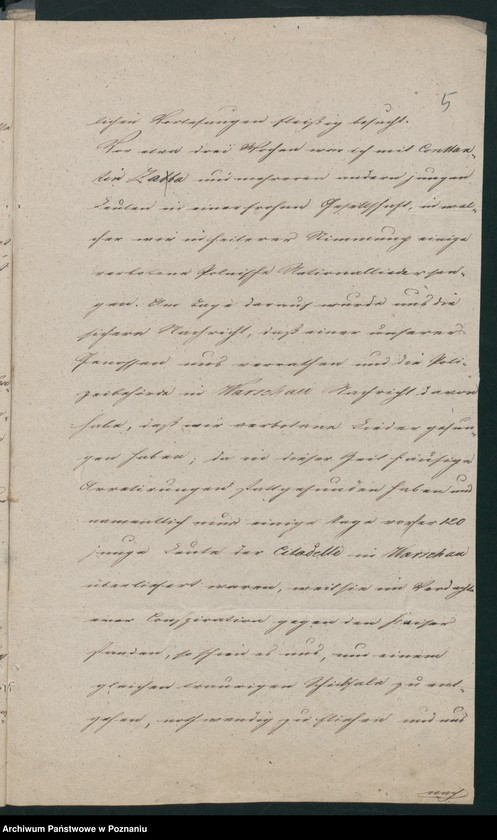 5
lichen Vorlesungen fleißig besucht.
Vor etwa drei Wochen war ich mit Constan-
tin Zabba und mehreren andern jungen
Leuten in einer frohen Gesellschaft, in wel-
cher wir in heiterer Stimmung einige
verbotene Polnische Nationallieder san-
gen. Am Tage darauf wurde uns die
sichere Nachricht, daß einer unserer
Genossen uns verrathen und die Poli-
zeibehörde in Warschau Nachricht davon
habe, daß wir verbotene Lieder gesun-
gen haben; da in dieser Zeit häufige
Arretirungen stattgefunden haben und
namentlich nur einige Tage vorher 120
junge Leute der Citadelle in Warschau
überliefert waren, weil sie im Verdachte
einer Conspiration gegen den Kaiser
standen, so schien es uns, um einem
gleichen traurigen Schicksale zu ent-
gehen, nothwendig zu fliehen und uns
nach
Archiwum Państwowe w Poznaniu